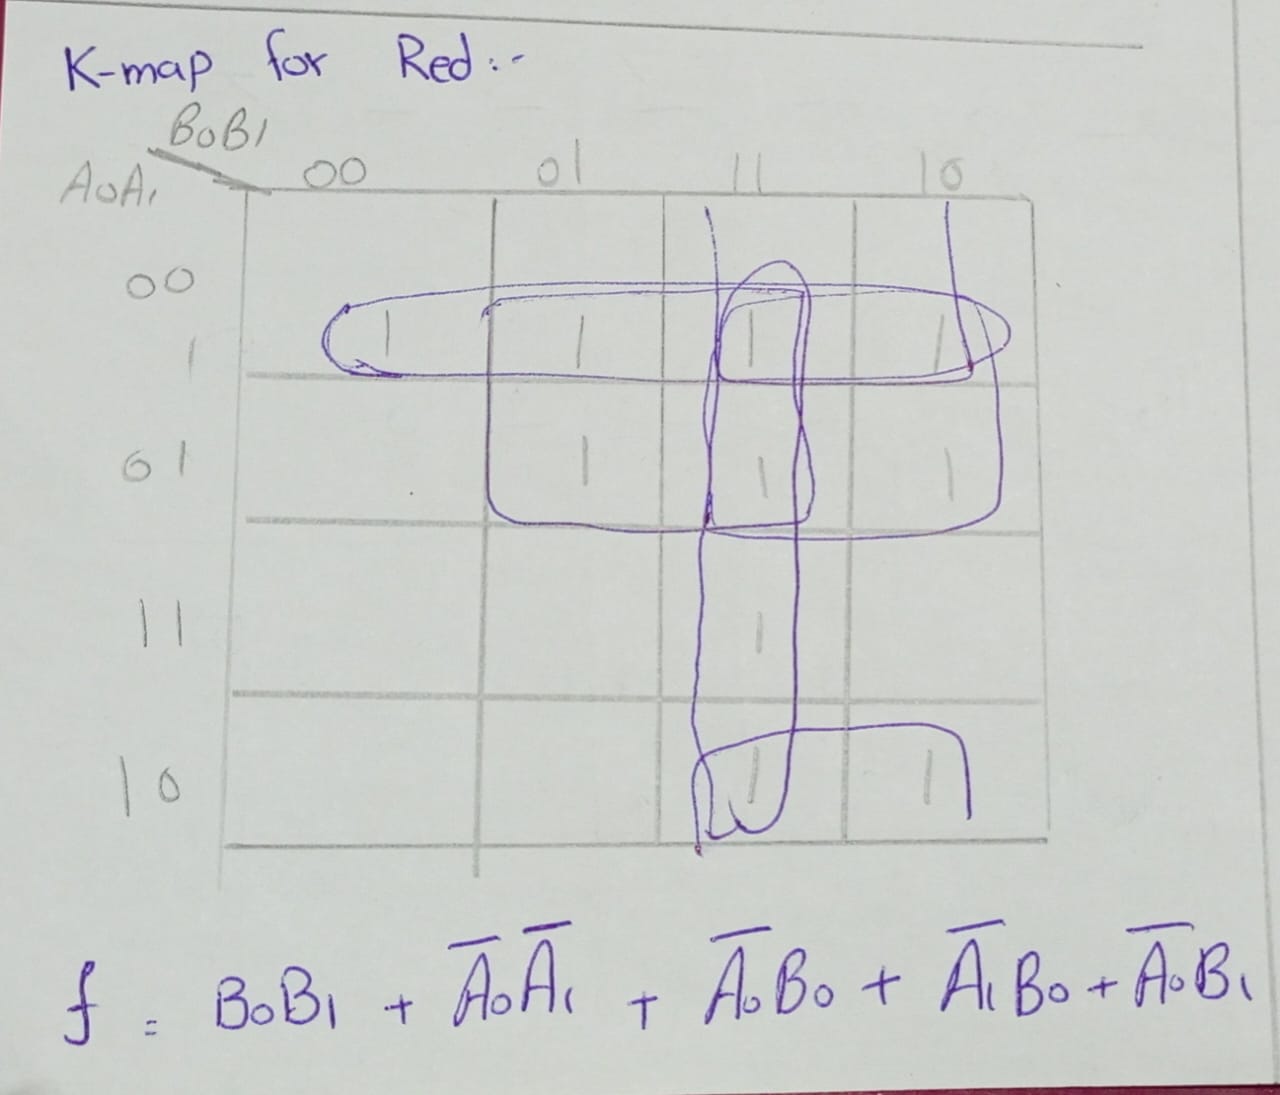 K-map for Red:-
B0B1
A0A1 00 01 11 10
00 1 1 1 1
1
01 1 1 1
11 1
10 1 1
f = B0B1 + A̅0A̅1 + A̅0B0 + A̅1B0 + A̅0B1